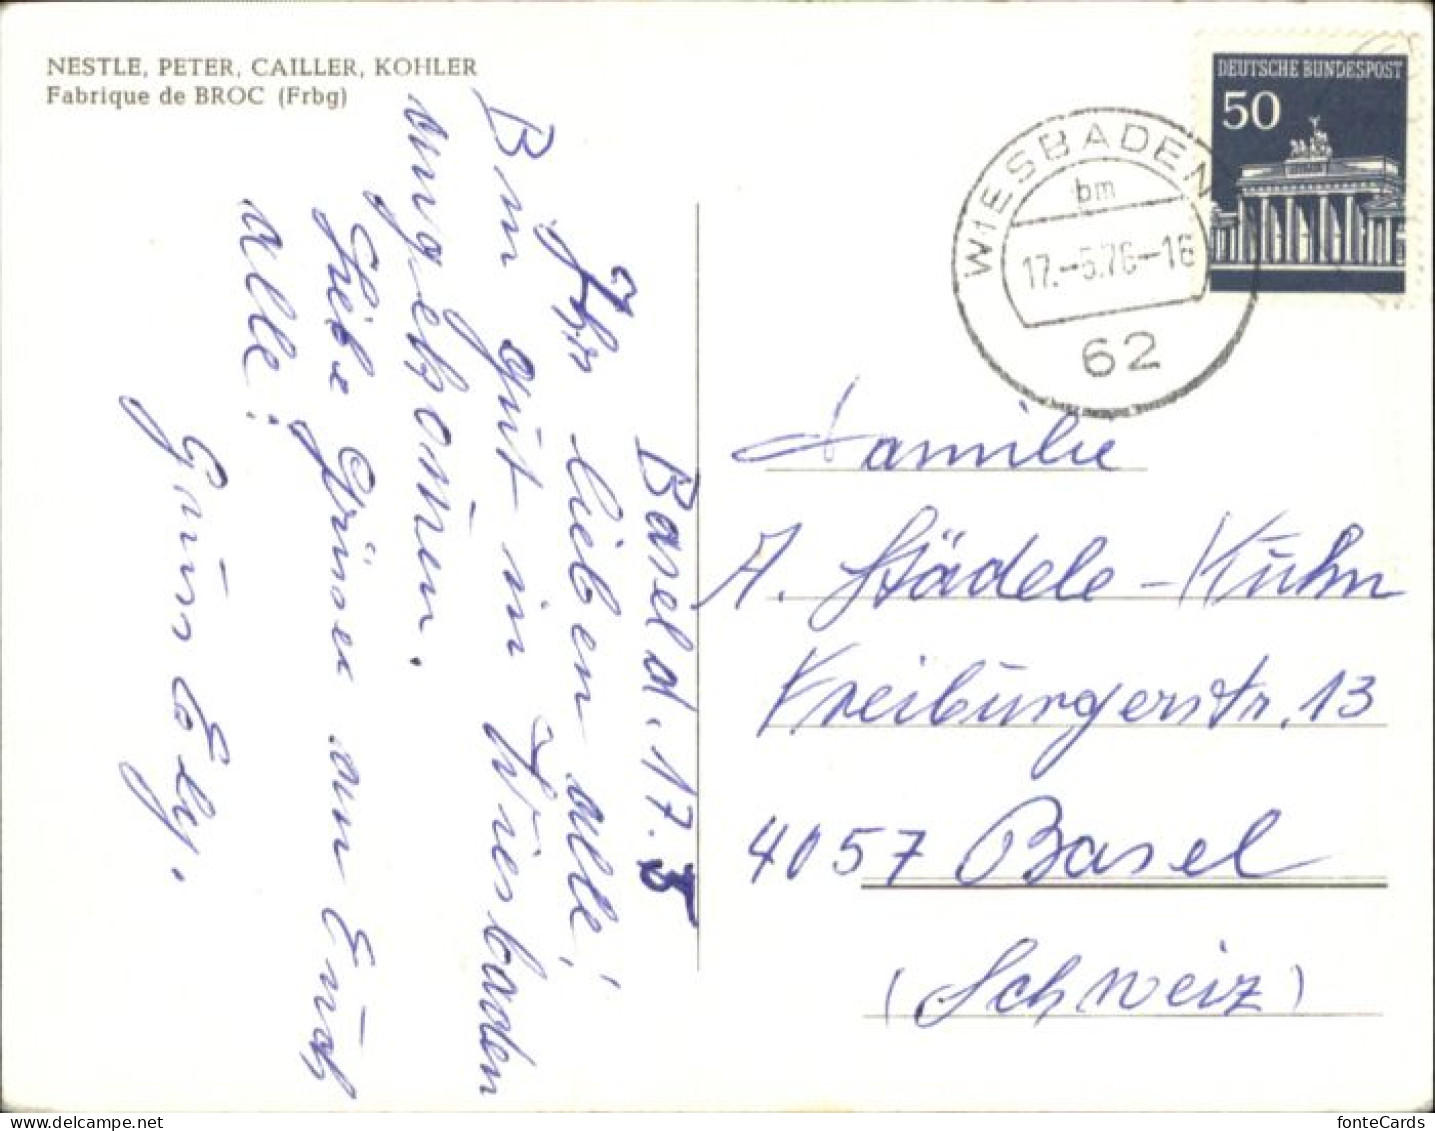 NESTLE, PETER, CAILLER, KOHLER
Fabrique de BROC (Frbg)
DEUTSCHE BUNDESPOST
50
WIESBADEN
bm
17.-5.76-16
62
Basel d. 17. 5
Ihr lieben alle!
Bin gut in Wiesbaden
angekom̄en.
Liebe Grüsse an Euch
alle!
Gruss Elly.
Familie
A. Städele-Kuhn
Freiburgerstr. 13
4057 Basel
(Schweiz)
fonteCards